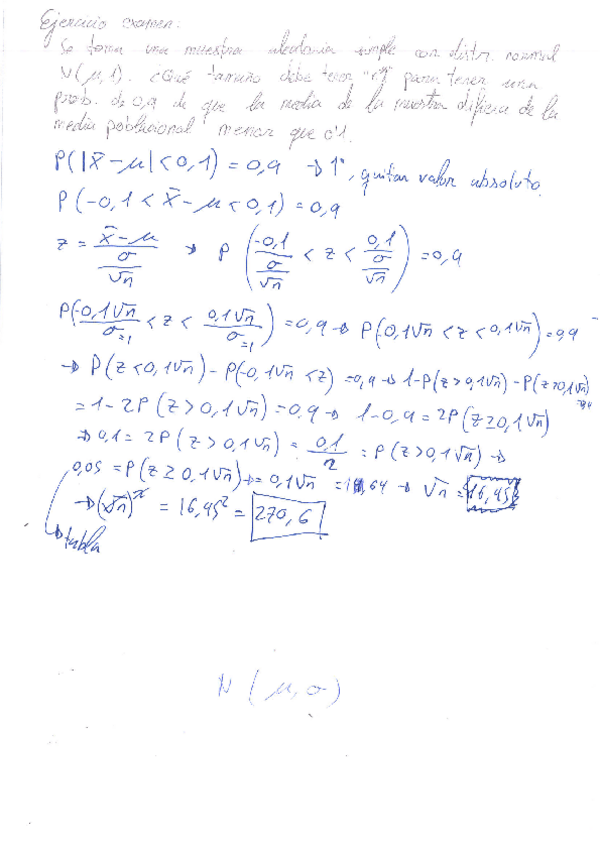 Ejercicio examen:
Se toma una muestra aleatoria simple con distr. normal
N(μ,1). ¿Qué tamaño debe tener "n" para tener una
prob. de 0,9 de que la media de la muestra difiera de la
media poblacional menor que 0'1.
P(|x̄-μ|<0,1)=0,9 → 1º, quitar valor absoluto.
P(-0,1<x̄-μ<0,1)=0,9
z = (x̄-μ)/(σ/√n) → P(-0,1/(σ/√n) < z < 0,1/(σ/√n)) =0,9
P(-0,1√n/σ=1 < z < 0,1√n/σ=1) =0,9 → P(0,1√n<z<0,1√n)=0,9
→ P(z<0,1√n) - P(-0,1√n<z) =0,9 → 1-P(z>0,1√n)-P(z>0,1√n)
=1-2P(z>0,1√n)=0,9 → 1-0,9=2P(z≥0,1√n)
→ 0,1=2P(z>0,1√n) = 0,1/2 = P(z>0,1√n) →
0,05 = P(z≥0,1√n) → = 0,1√n = 1,64 → √n = 16,45
→ (√n)² = 16,45² = 270,6
→ tabla
N(μ,σ)